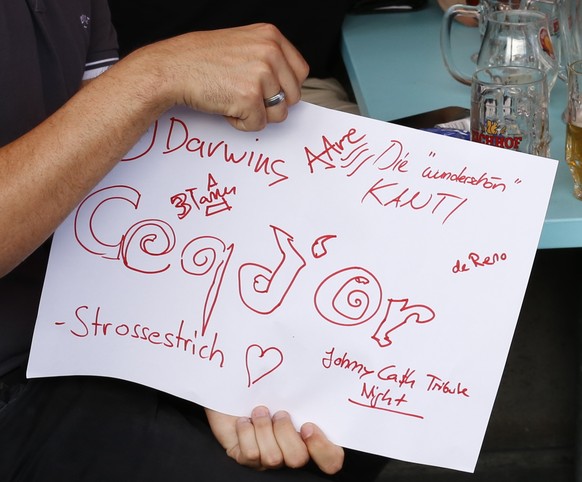 Darwins
AAre
Die "wunderschön"
KANTI
3 Tannen
Coq d'or
de Reno
- Strossestrich
Johnny Cash Tribute
Night